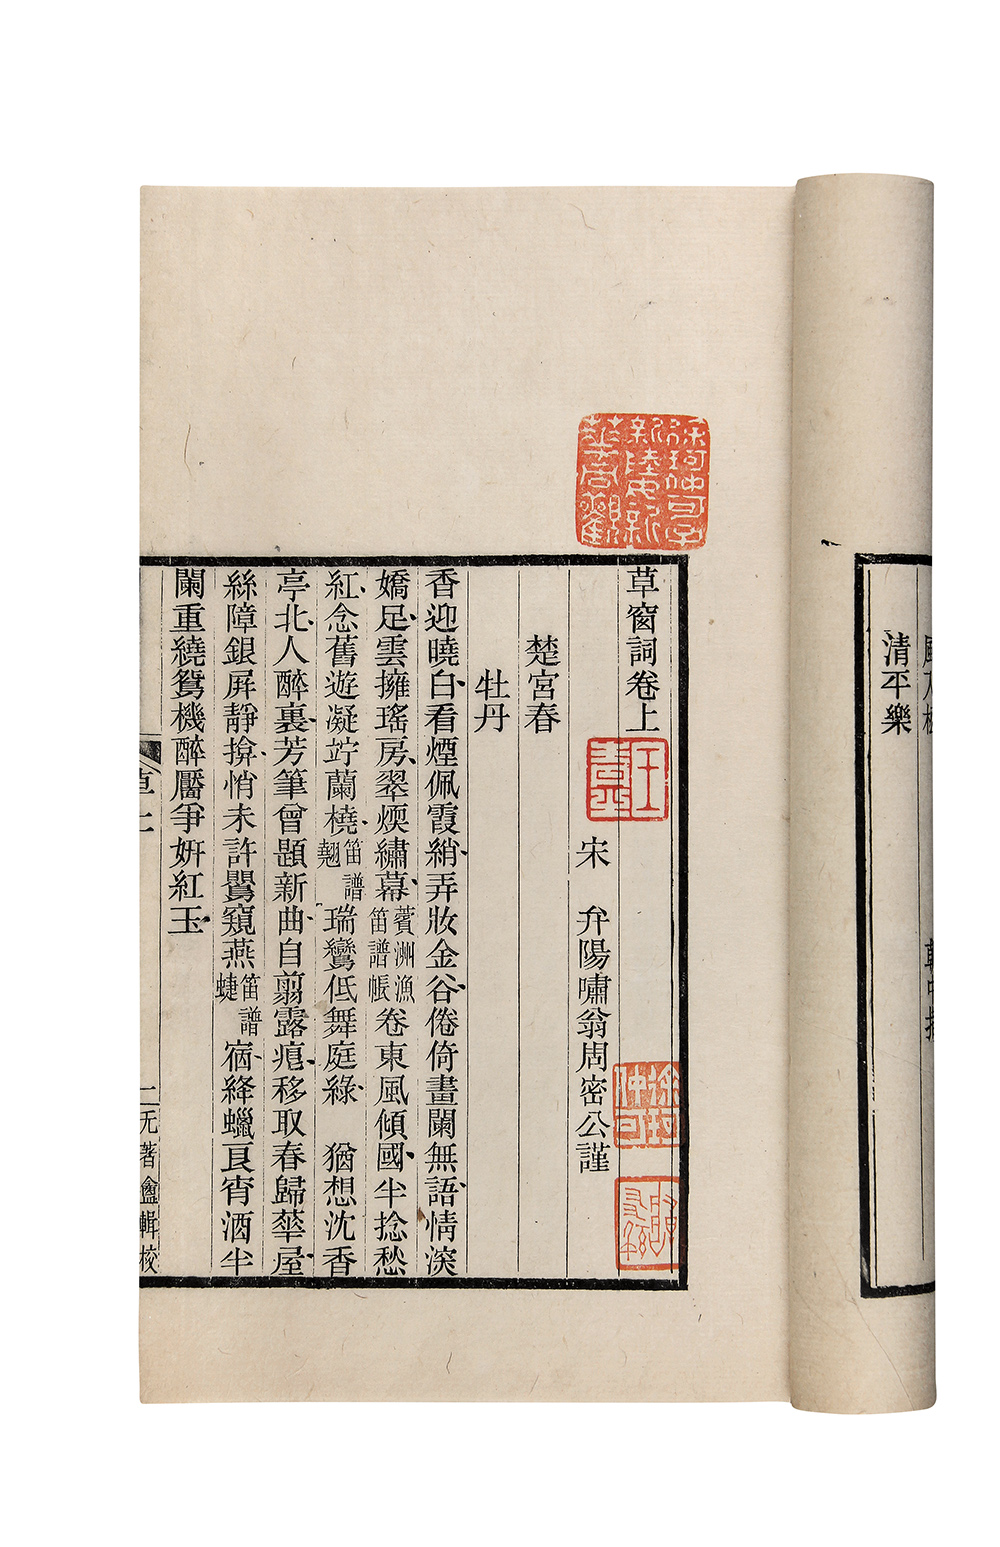 清平樂
草窗詞卷上
宋 弁陽嘯翁周密公謹
楚宮春
牡丹
香迎曉白看煙佩霞綃弄妝金谷倦倚畫闌無語情深
嬌足雲擁瑤房翠煗繡幕薲洲漁笛譜帳卷東風傾國半捻愁
紅念舊遊凝竚蘭橈笛譜翹瑞鸞低舞庭綠 猶想沈香
亭北人醉裏芳筆曾題新曲自翦露痕移取春歸華屋
絲障銀屏靜揜悄未許鶯窺燕笛譜蜨宿絳蠟良宵酒半
闌重繞鴛機醉靨爭妍紅玉
草上 一 无著盦輯校
徐珂仲可